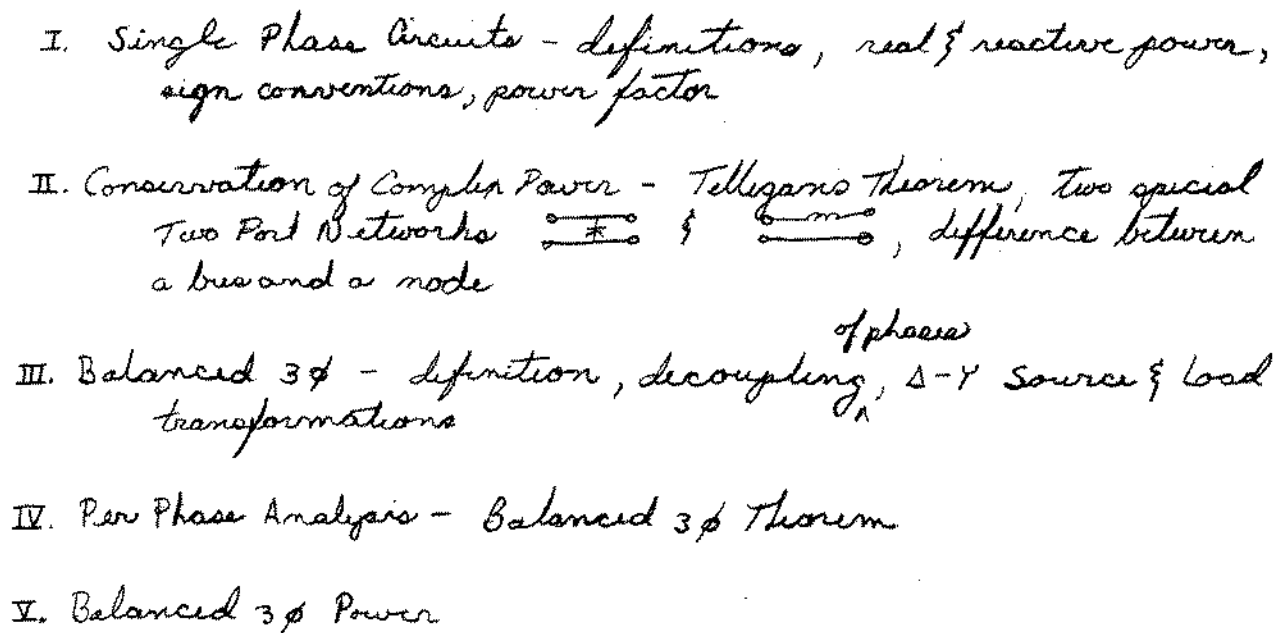 I. Single Phase Circuits - definitions, real & reactive power,
sign conventions, power factor
II. Conservation of Complex Power - Tellegans Theorem, two special
Two Port Networks & , difference between
a bus and a node
of phases
III. Balanced 3φ - definition, decoupling, Δ-Y Source & Load
transformations
IV. Per Phase Analysis - Balanced 3φ Theorem
V. Balanced 3φ Power